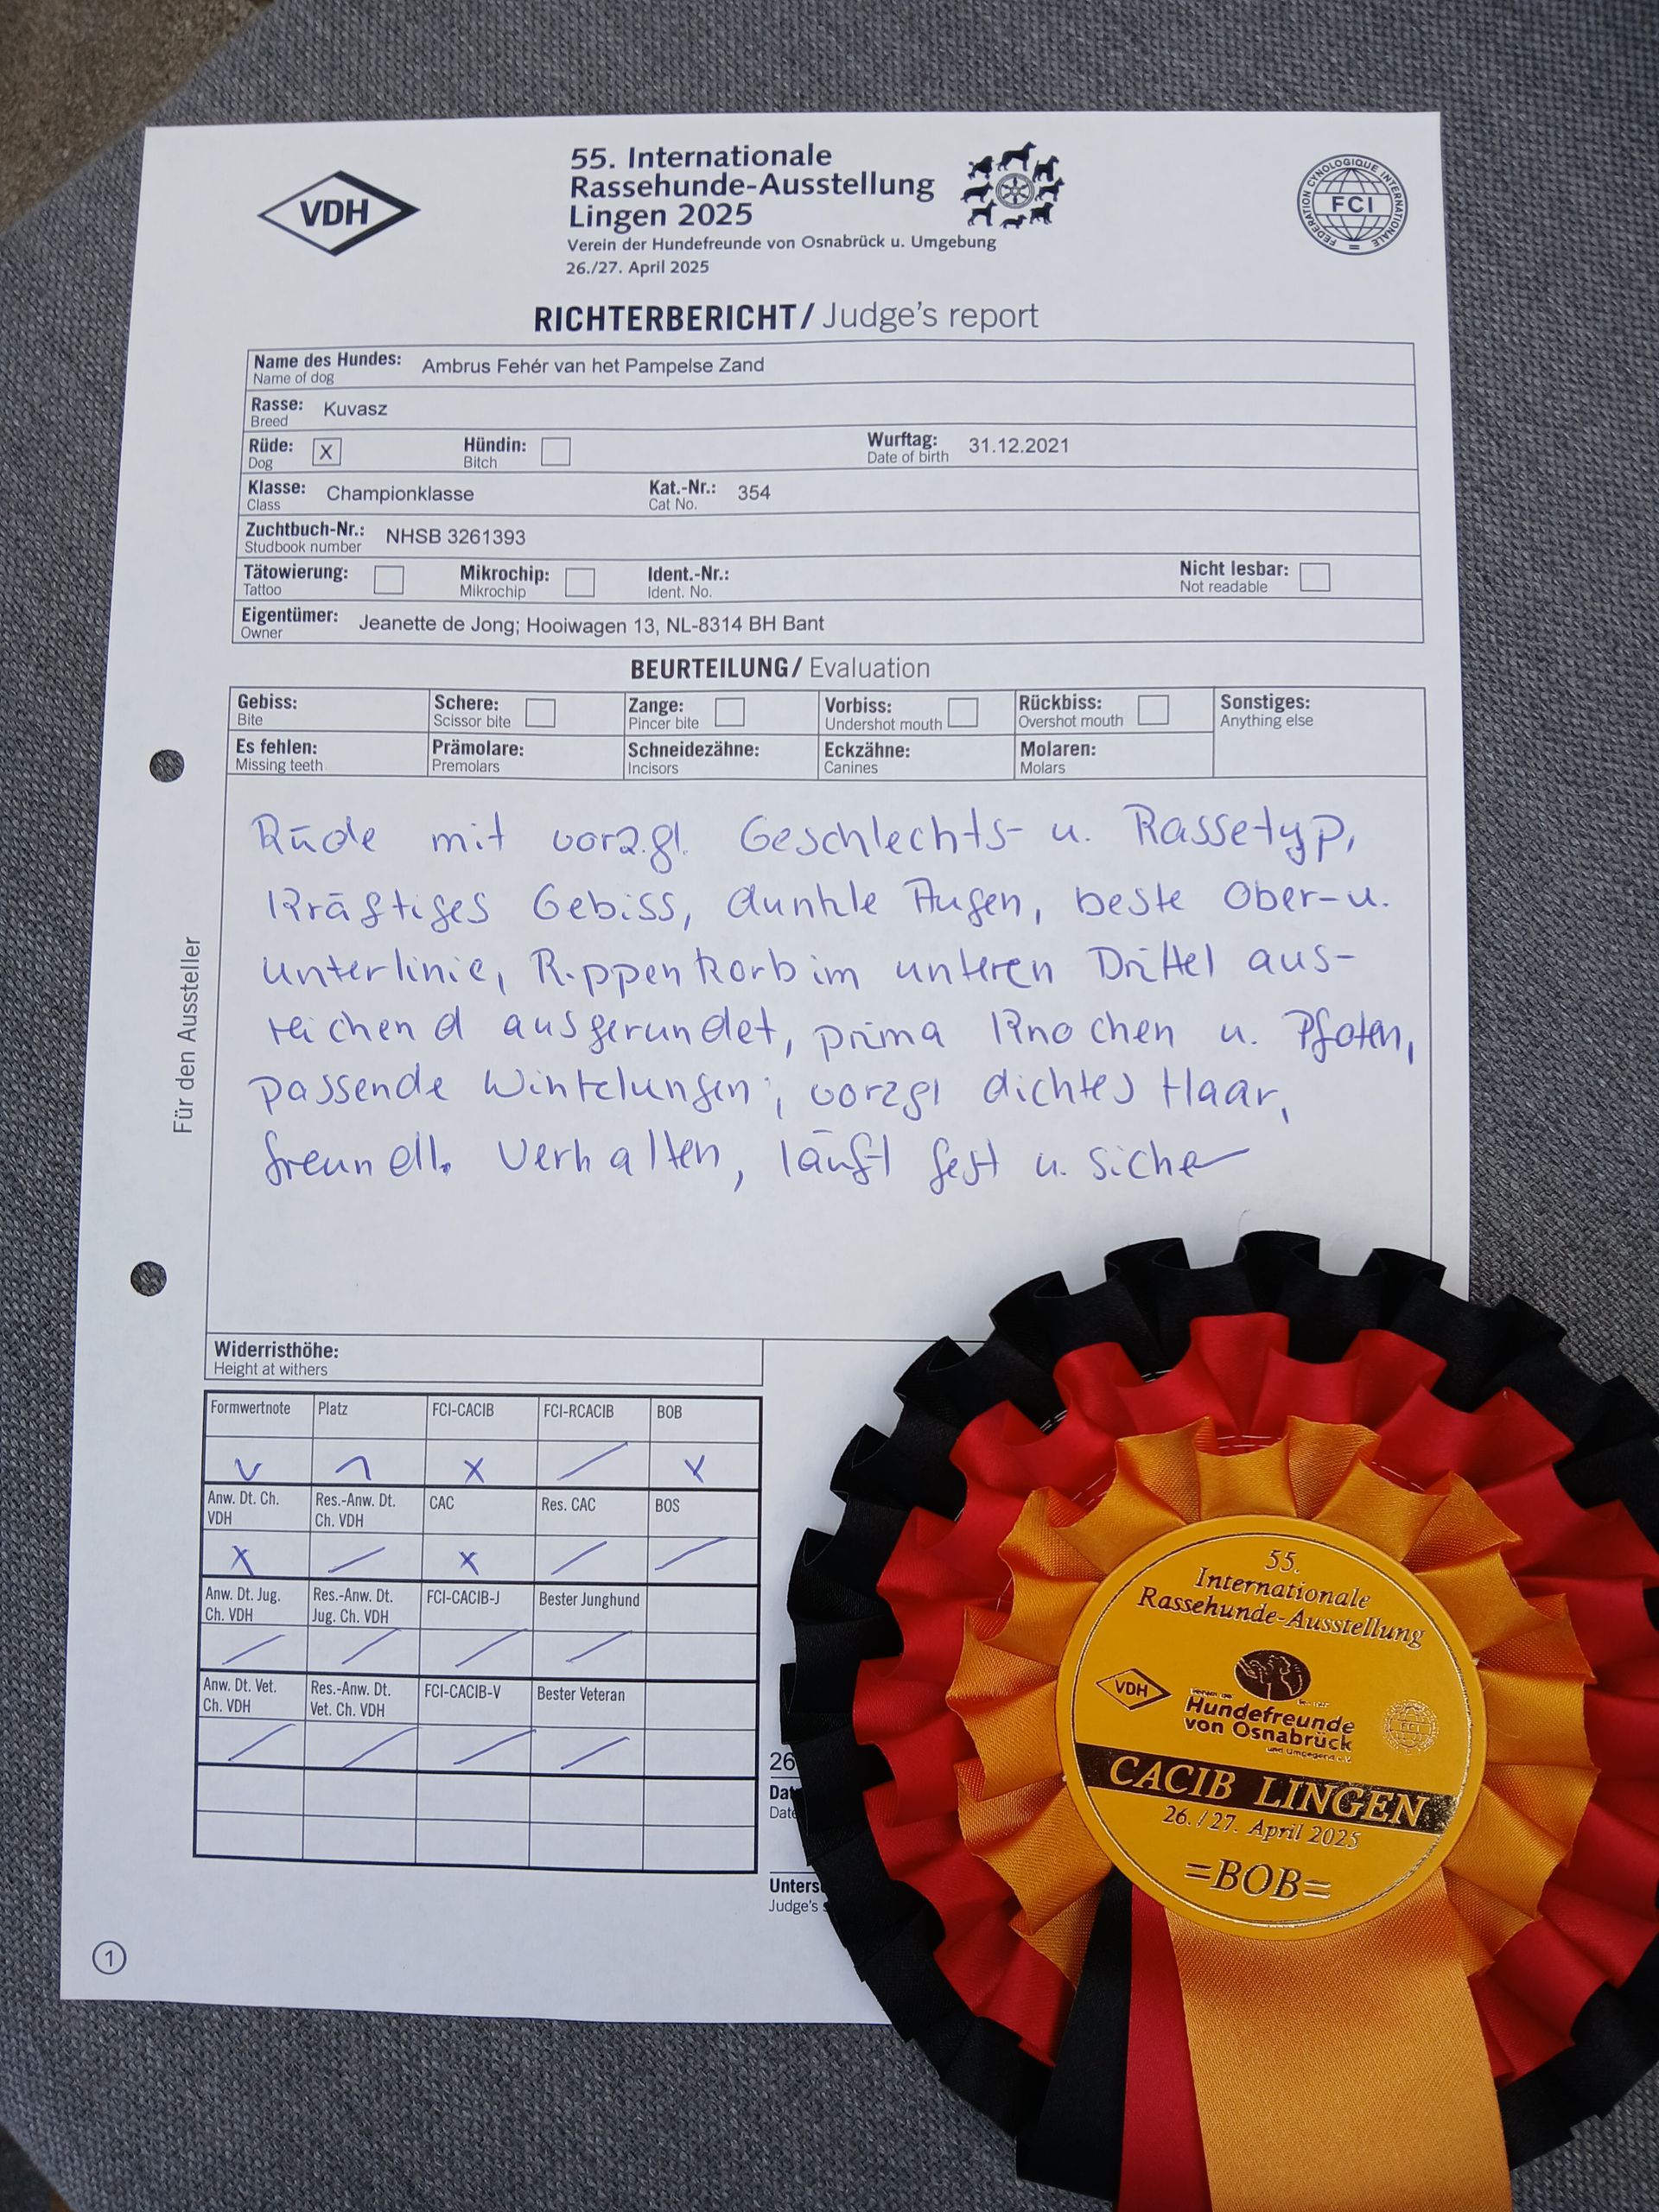 VDH
55. Internationale
Rassehunde-Ausstellung
Lingen 2025
Verein der Hundefreunde von Osnabrück u. Umgebung
26./27. April 2025
FEDERATION CYNOLOGIQUE INTERNATIONALE
FCI
RICHTERBERICHT/ Judge's report
Name des Hundes: Ambrus Fehér van het Pampelse Zand
Name of dog
Rasse: Kuvasz
Breed
Rüde: X Hündin: Wurftag: 31.12.2021
Dog Bitch Date of birth
Klasse: Championklasse Kat.-Nr.: 354
Class Cat No.
Zuchtbuch-Nr.: NHSB 3261393
Studbook number
Tätowierung: Mikrochip: Ident.-Nr.: Nicht lesbar:
Tattoo Mikrochip Ident. No. Not readable
Eigentümer: Jeanette de Jong; Hooiwagen 13, NL-8314 BH Bant
Owner
BEURTEILUNG/ Evaluation
Gebiss: Schere: Zange: Vorbiss: Rückbiss: Sonstiges:
Bite Scissor bite Pincer bite Undershot mouth Overshot mouth Anything else
Es fehlen: Prämolare: Schneidezähne: Eckzähne: Molaren:
Missing teeth Premolars Incisors Canines Molars
Für den Aussteller
Rüde mit vorzgl. Geschlechts- u. Rassetyp,
kräftiges Gebiss, dunkle Augen, beste Ober-u.
unterlinie, Rippenkorb im unteren Drittel aus-
reichend ausgerundet, prima Knochen u. Pfoten,
passende Winkelungen, vorzgl dichtes Haar,
freundl. Verhalten, läuft fest u. sicher
Widerristhöhe:
Height at withers
Formwertnote Platz FCI-CACIB FCI-RCACIB BOB
V 1 X / X
Anw. Dt. Ch. Res.-Anw. Dt. CAC Res. CAC BOS
VDH Ch. VDH
X / X / /
Anw. Dt. Jug. Res.-Anw. Dt. FCI-CACIB-J Bester Junghund
Ch. VDH Jug. Ch. VDH
/ / / /
Anw. Dt. Vet. Res.-Anw. Dt. FCI-CACIB-V Bester Veteran
Ch. VDH Vet. Ch. VDH
/ / / /
26
Dat
Date
Unters
Judge's
1
55.
Internationale
Rassehunde-Ausstellung
VDH
Hundefreunde
von Osnabrück
und Umgegend e.V.
FCI
CACIB LINGEN
26./27. April 2025
=BOB=